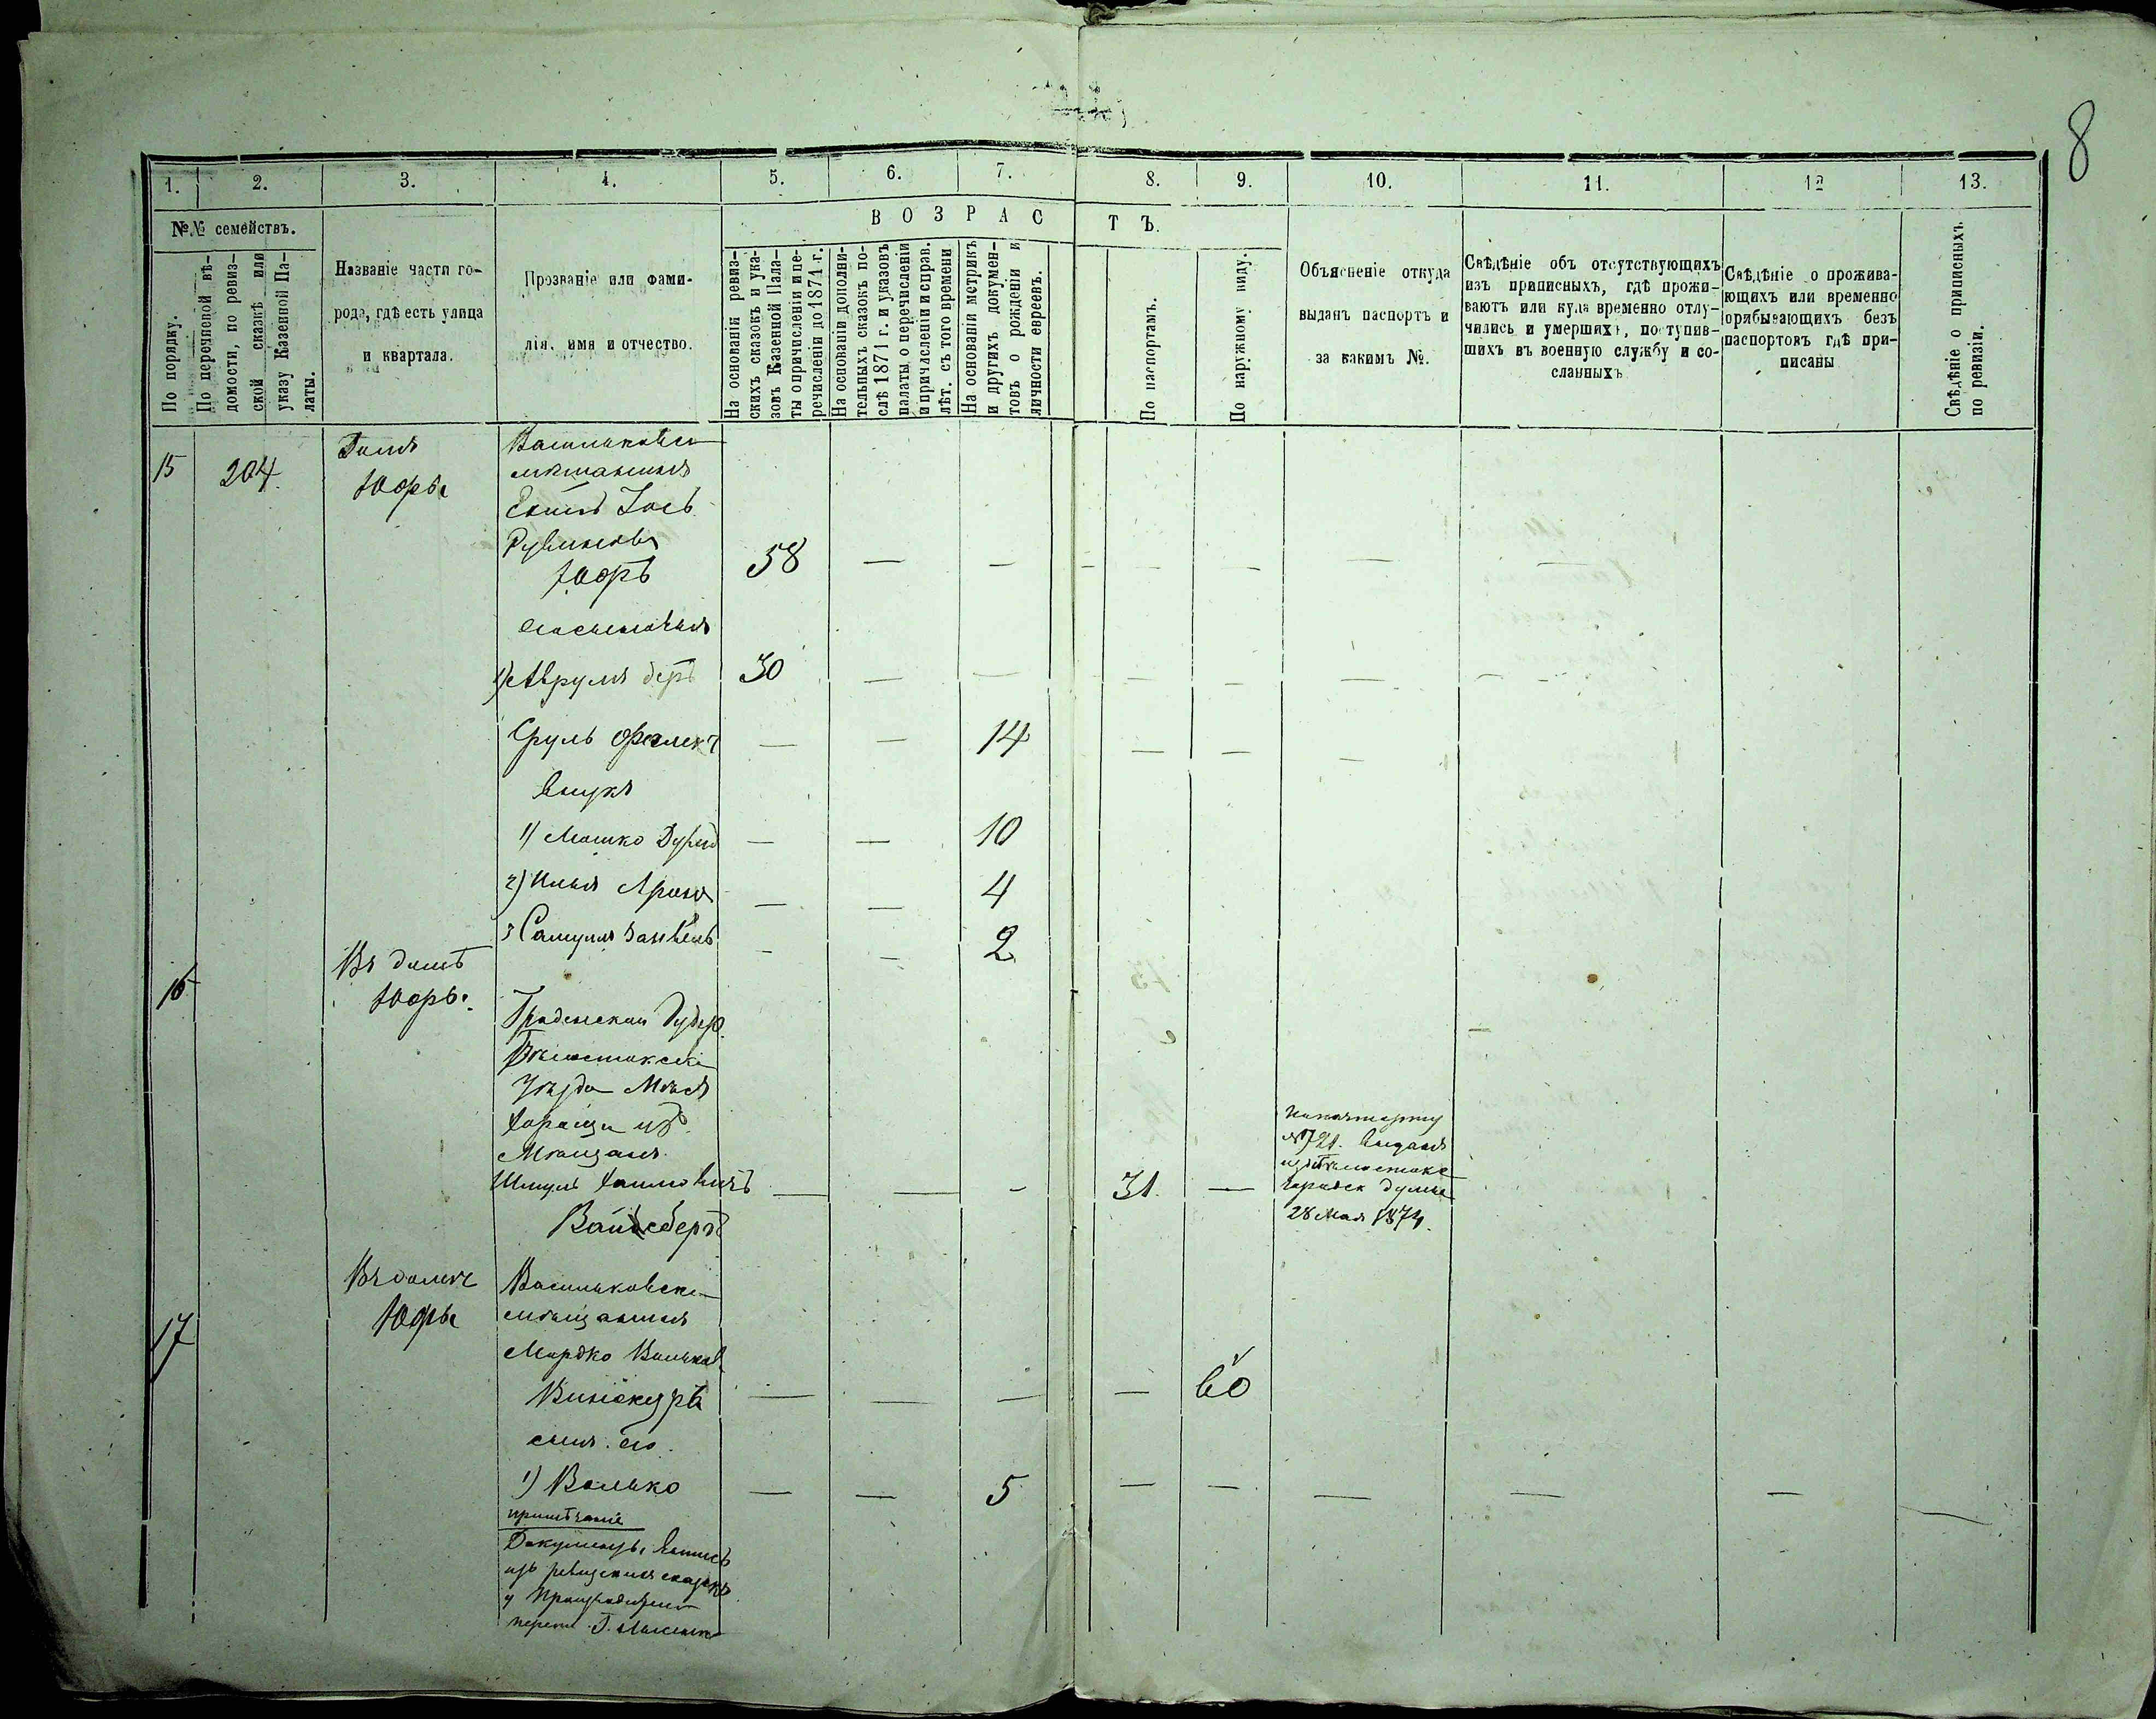 8
1. 2. 3. 4. 5. 6. 7. 8. 9. 10. 11. 12 13.
№№ семействъ.
По порядку.
По перечневой вѣ-
домости, по ревиз-
ской сказкѣ или
указу Казенной Па-
латы.
Названіе части го-
рода, гдѣ есть улица
и квартала.
Прозваніе или фами-
лія, имя и отчество.
ВОЗРАСТЪ.
На основаніи ревиз-
скихъ сказокъ и ука-
зовъ Казенной Пала-
ты о причисленіи и пе-
речисленіи до 1871 г.
На основаніи дополни-
тельныхъ сказокъ по-
слѣ 1871 г. и указовъ
палаты о перечисленіи
и причисленіи и справ.
лѣт. съ того времени
На основаніи метрикъ
и другихъ докумен-
товъ о рожденіи и
личности евреевъ.
По паспортамъ.
По наружному виду.
Объясненіе откуда
выданъ паспортъ и
за какимъ №.
Свѣдѣніе объ отсутствующихъ
изъ приписныхъ, гдѣ прожи-
ваютъ или куда временно отлу-
чились и умершихъ, поступив-
шихъ въ военную службу и со-
сланныхъ
Свѣдѣніе о прожива-
ющихъ или временно
прибывающихъ безъ
паспортовъ гдѣ при-
писаны
Свѣдѣніе о приписныхъ
по ревизіи.
15 204 Домъ
Юфы
Васильковск
мѣщанинъ
Іосъ
Рувиновъ
Юфъ 58 — — — — — — —
его сыновья
1) Аврумъ беръ 30 — — — — — — —
Сруль — — 14 — — —
внукъ
1) Мошко Дувид — — 10
2) Илья Арон — — 4
3 Самуилъ Занвель — — 2
16 Въ домѣ
Юфы.
Гродненской Губер.
Бѣлостокск
Уѣзда Мѣст
Хорощи изъ
Мѣщанъ
Шмуль Хаимовичъ — — — 31. —
Вайсбергъ
По паспорту
№721. выданъ
изъ Бѣлостокс
городск думы
28 Мая 1874.
17 Въ домѣ
Юфы
Васильковск
мѣщанинъ
Мордко Вольков
Винокуръ — — — — 60
сынъ его.
1) Волько — — 5 — — — — —
примѣчаніе
из ревизских сказок